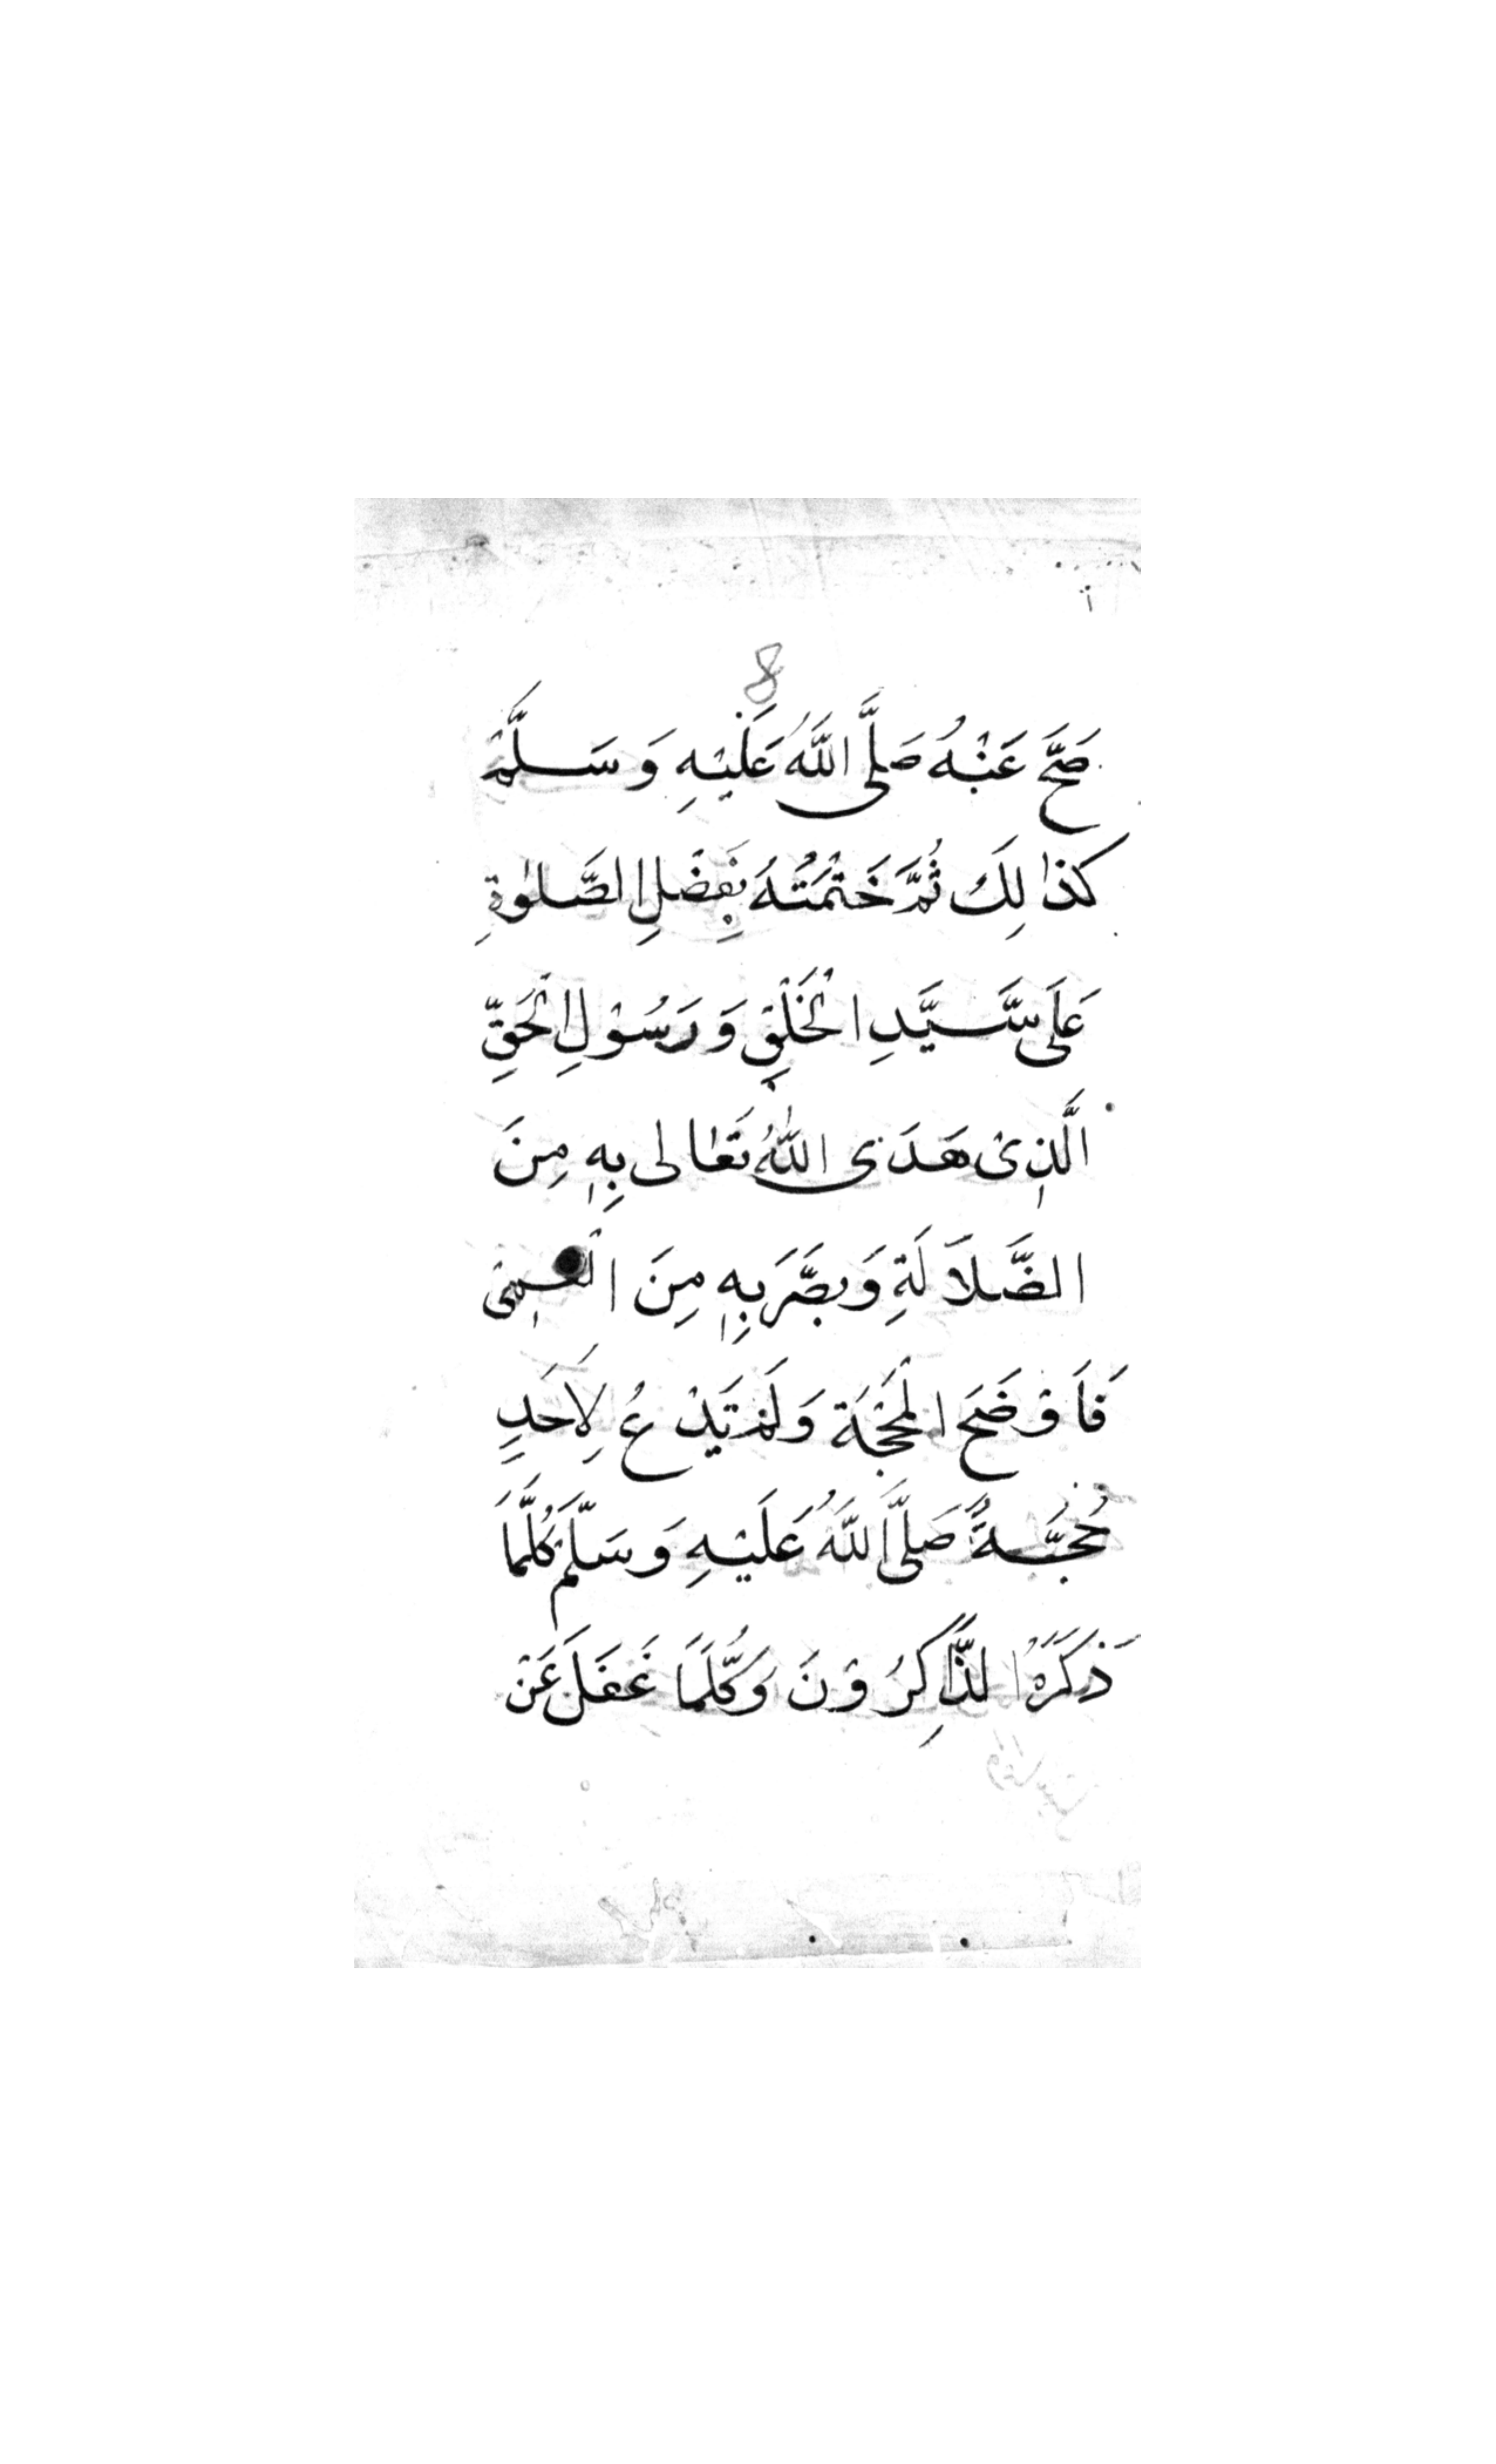 8
صَحَّ عَنْهُ صَلَّى اللَّهُ عَلَيْهِ وَسَلَّمْ
كَذٰلِكَ ثُمَّ خَتَمْتُهُ بِفَضْلِ الصَّلٰوةِ
عَلَى سَيَّدِ الْخَلْقِ وَرَسُوْلِ الْحَقِّ
الَّذِىْ هَدَى اللّٰهُ تَعَالٰى بِهٖ مِنَ
الضَّلَالَةِ وَبَصَّرَ بِهٖ مِنَ الْعَمٖىْ
فَاَوْضَحَ الْمَحْجَةَ وَلَمْ يَدْعُ لِاَحَدٍ
حُجَّةً صَلَّى اللَّهُ عَلَيْهِ وَسَلَّمَ كُلَّمَا
ذَكَرَهُ الذَّاكِرُوْنَ وَكُلَّمَا غَفَلَ عَنْ